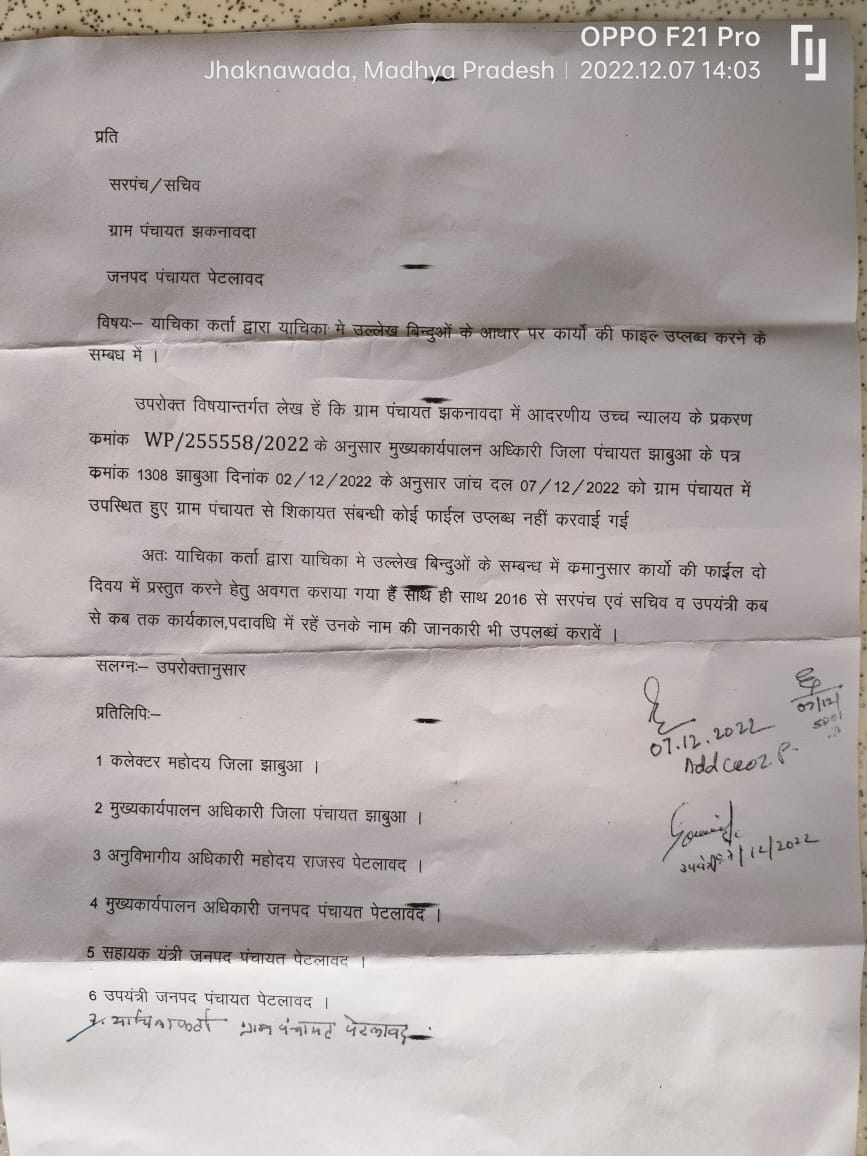 OPPO F21 Pro
Jhaknawada, Madhya Pradesh | 2022.12.07 14:03
प्रति
सरपंच/सचिव
ग्राम पंचायत झकनावदा
जनपद पंचायत पेटलावद
विषयः– याचिका कर्ता द्वारा याचिका मे उल्लेख बिन्दुओं के आधार पर कार्यो की फाइल उप्लब्ध करने के
सम्बध में ।
उपरोक्त विषयान्तर्गत लेख हें कि ग्राम पंचायत झकनावदा में आदरणीय उच्च न्यालय के प्रकरण
कमांक WP/255558/2022 के अनुसार मुख्यकार्यपालन अधिकारी जिला पंचायत झाबुआ के पत्र
कमांक 1308 झाबुआ दिनांक 02/12/2022 के अनुसार जांच दल 07/12/2022 को ग्राम पंचायत में
उपस्थित हुए ग्राम पंचायत से शिकायत संबन्धी कोई फाईल उप्लब्ध नहीं करवाई गई
अतः याचिका कर्ता द्वारा याचिका मे उल्लेख बिन्दुओं के सम्बन्ध में कमानुसार कार्यो की फाईल दो
दिवय में प्रस्तुत करने हेतु अवगत कराया गया हैं साथ ही साथ 2016 से सरपंच एवं सचिव व उपयंत्री कब
से कब तक कार्यकाल,पदावधि में रहें उनके नाम की जानकारी भी उपलब्धं करावें ।
सलग्नः– उपरोक्तानुसार
प्रतिलिपिः–
07.12.2022
Add CEO Z.P.
07/12/
1 कलेक्टर महोदय जिला झाबुआ ।
2 मुख्यकार्यपालन अधिकारी जिला पंचायत झाबुआ ।
उपयंत्री 07/12/2022
3 अनुविभागीय अधिकारी महोदय राजस्व पेटलावद ।
4 मुख्यकार्यपालन अधिकारी जनपद पंचायत पेटलावद ।
5 सहायक यंत्री जनपद पंचायत पेटलावद ।
6 उपयंत्री जनपद पंचायत पेटलावद ।
7. याचिकाकर्ता ग्राम पंचायत पेटलावद